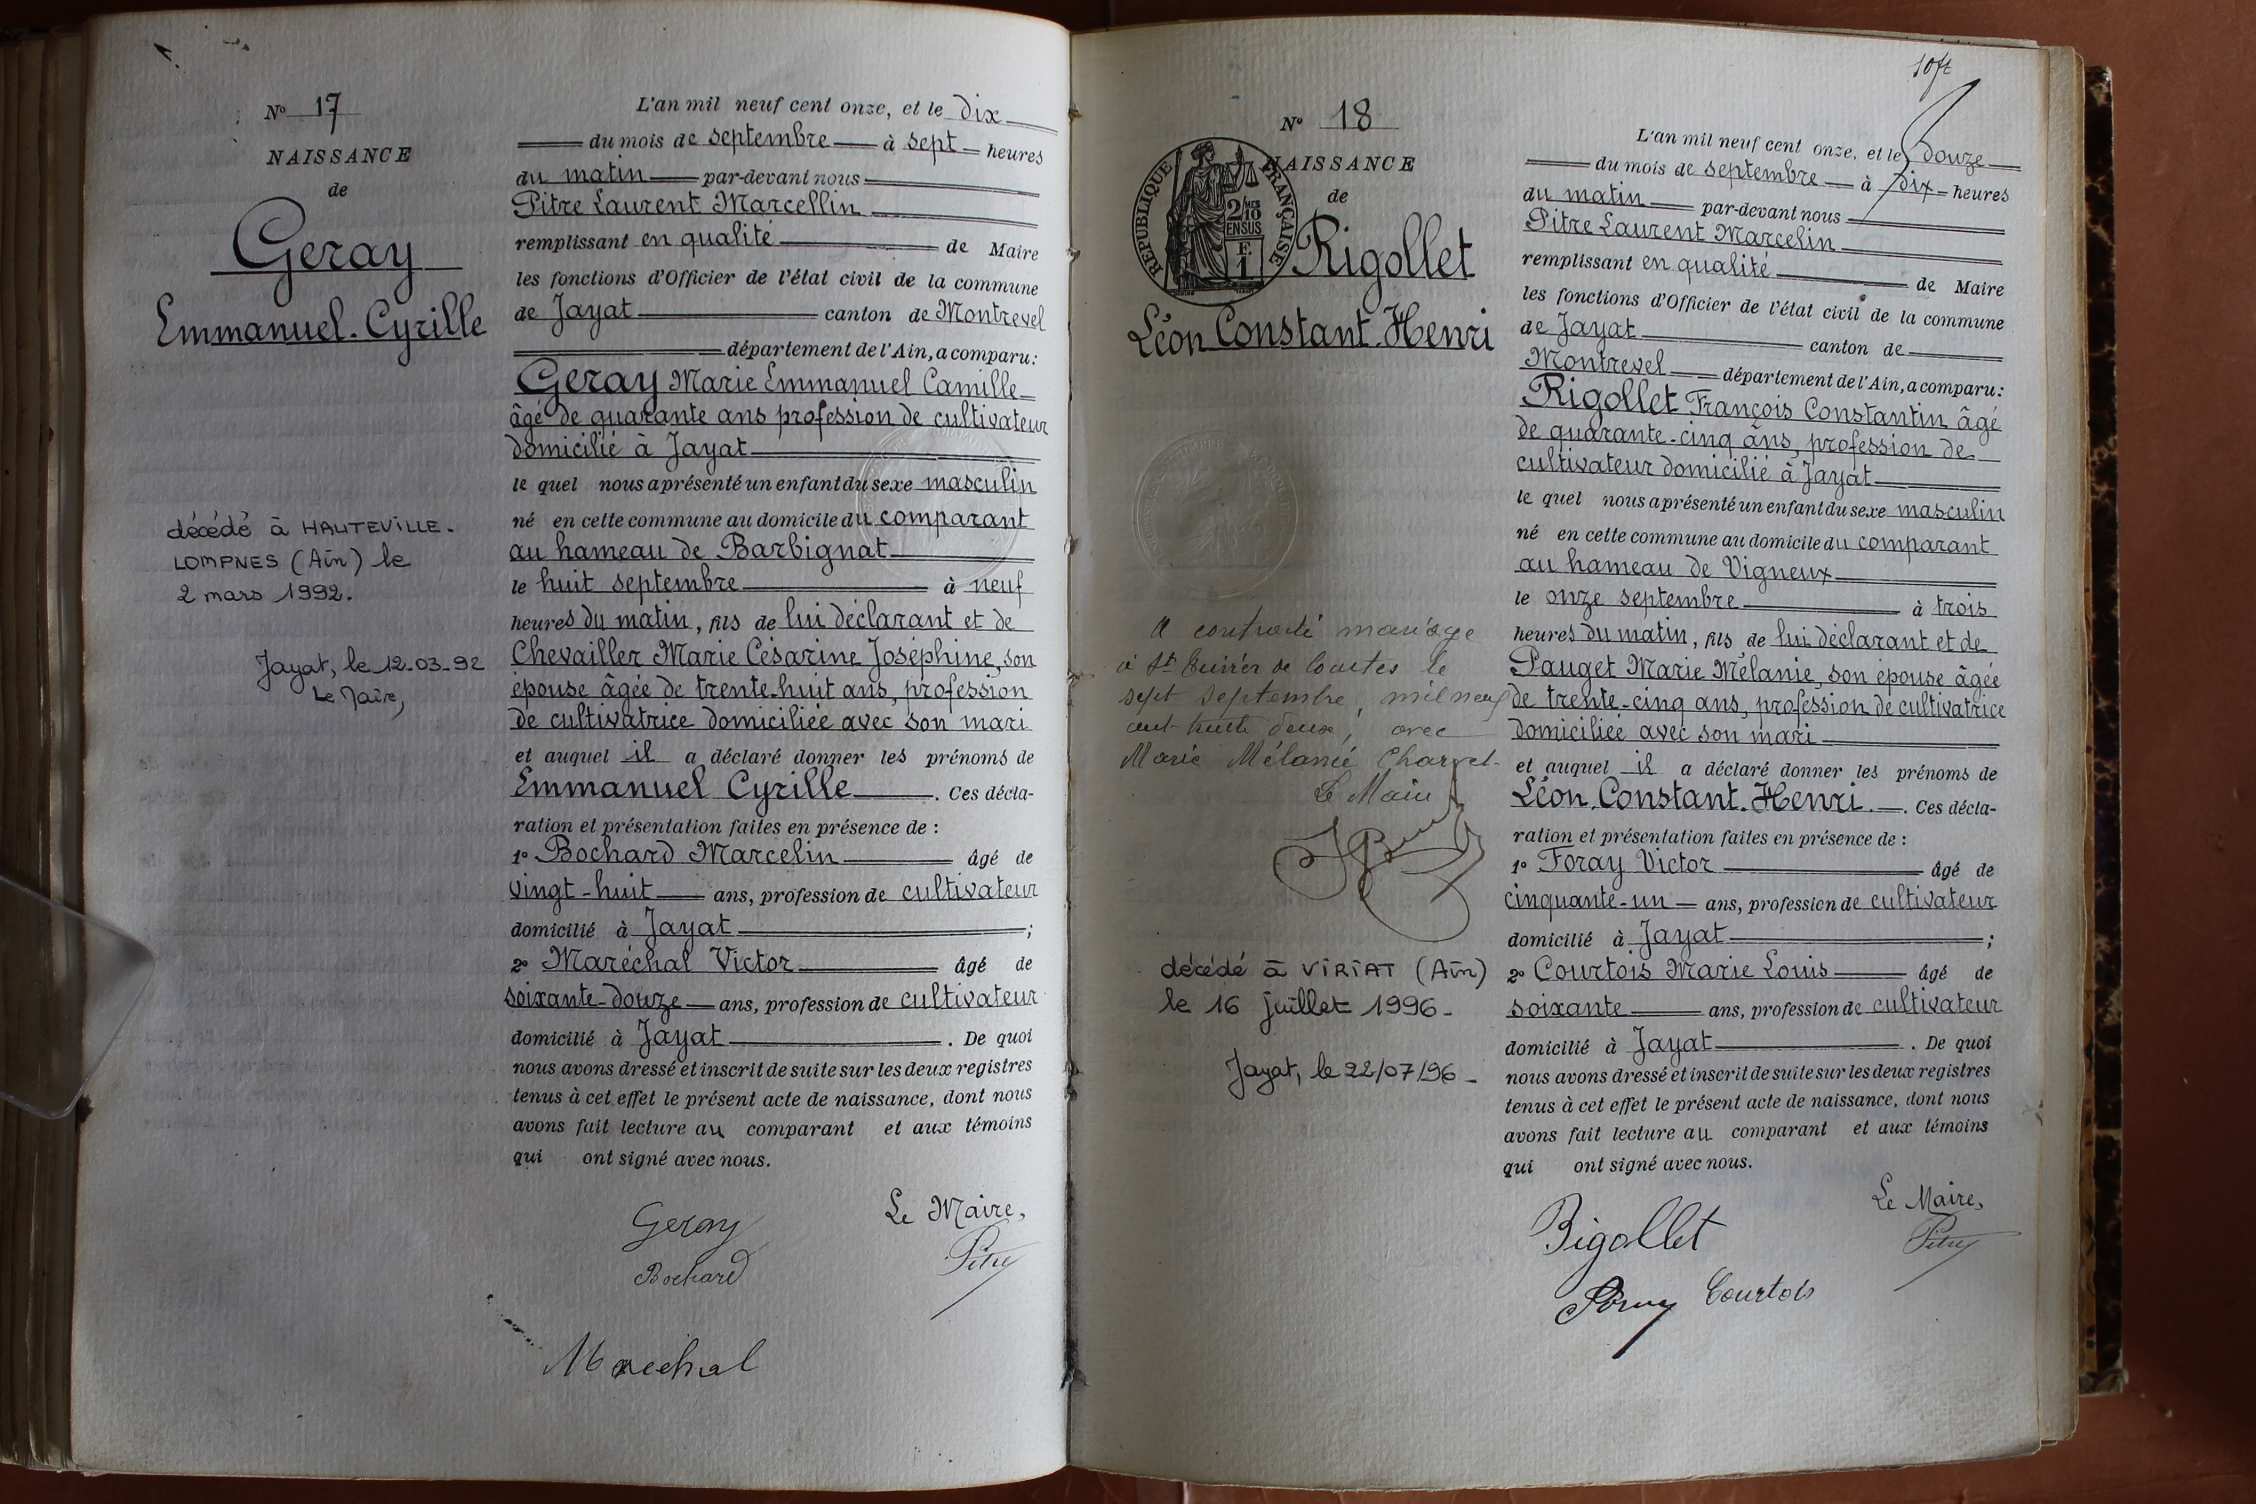 N° 17
NAISSANCE
de
Geray
Emmanuel-Cyrille
décédé à HAUTEVILLE-
LOMPNES (Ain) le
2 mars 1992.
Jayat, le 12-03-92
Le Maire,
L'an mil neuf cent onze, et le dix
du mois de septembre à sept heures
du matin par-devant nous
Pitre Laurent Marcellin
remplissant en qualité de Maire
les fonctions d'Officier de l'état civil de la commune
de Jayat canton de Montrevel
département de l'Ain, a comparu:
Geray Marie Emmanuel Camille
âgé de quarante ans profession de cultivateur
domicilié à Jayat
le quel nous a présenté un enfant du sexe masculin
né en cette commune au domicile du comparant
au hameau de Barbignat
le huit septembre à neuf
heures du matin, fils de lui déclarant et de
Chevailler Marie Césarine Joséphine, son
épouse âgée de trente-huit ans, profession
de cultivatrice domiciliée avec son mari
et auquel il a déclaré donner les prénoms de
Emmanuel Cyrille. Ces décla-
ration et présentation faites en présence de :
1° Bochard Marcelin âgé de
vingt-huit ans, profession de cultivateur
domicilié à Jayat ;
2° Maréchal Victor âgé de
soixante-douze ans, profession de cultivateur
domicilié à Jayat. De quoi
nous avons dressé et inscrit de suite sur les deux registres
tenus à cet effet le présent acte de naissance, dont nous
avons fait lecture au comparant et aux témoins
qui ont signé avec nous.
Geray
Le Maire,
Bochard
Pitre
Marechal
10ft
N° 18
RÉPUBLIQUE FRANÇAISE
2/10
EN SUS
F.
1
NAISSANCE
de
Rigollet
Léon Constant-Henri
A contracté mariage
à St de Courtes le
sept septembre, mil neuf
cent trente deux, avec
Marie Mélanie Charvet
Le Maire
décédé à VIRIAT (Ain)
le 16 juillet 1996-
Jayat, le 22/07/96-
L'an mil neuf cent onze, et le douze
du mois de septembre à dix heures
du matin par-devant nous
Pitre Laurent Marcelin
remplissant en qualité de Maire
les fonctions d'Officier de l'état civil de la commune
de Jayat canton de
Montrevel département de l'Ain, a comparu:
Rigollet François Constantin âgé
de quarante-cinq ans, profession de
cultivateur domicilié à Jayat
le quel nous a présenté un enfant du sexe masculin
né en cette commune au domicile du comparant
au hameau de Vigneux
le onze septembre à trois
heures du matin, fils de lui déclarant et de
Pauget Marie Mélanie, son épouse âgée
de trente-cinq ans, profession de cultivatrice
domiciliée avec son mari
et auquel il a déclaré donner les prénoms de
Léon. Constant. Henri. Ces décla-
ration et présentation faites en présence de :
1° Foray Victor âgé de
cinquante-un ans, profession de cultivateur
domicilié à Jayat ;
2° Courtois Marie Louis âgé de
soixante ans, profession de cultivateur
domicilié à Jayat. De quoi
nous avons dressé et inscrit de suite sur les deux registres
tenus à cet effet le présent acte de naissance, dont nous
avons fait lecture au comparant et aux témoins
qui ont signé avec nous.
Rigollet
Le Maire,
Pitre
Foray Courtois